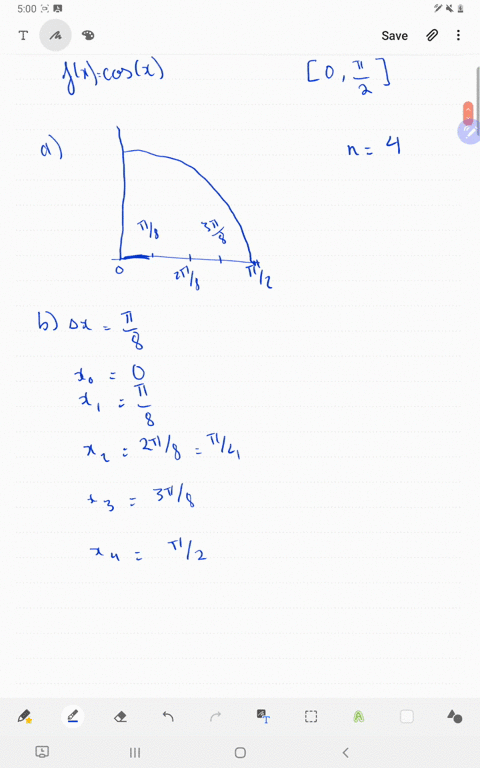 5:00
T Save
f(x)=cos(x) [0, π/2]
a) n = 4
π/8 3π/8
0 2π/8 π/2
b) Δx = π/8
x₀ = 0
x₁ = π/8
x₂ = 2π/8 = π/4
x₃ = 3π/8
x₄ = π/2
T
A